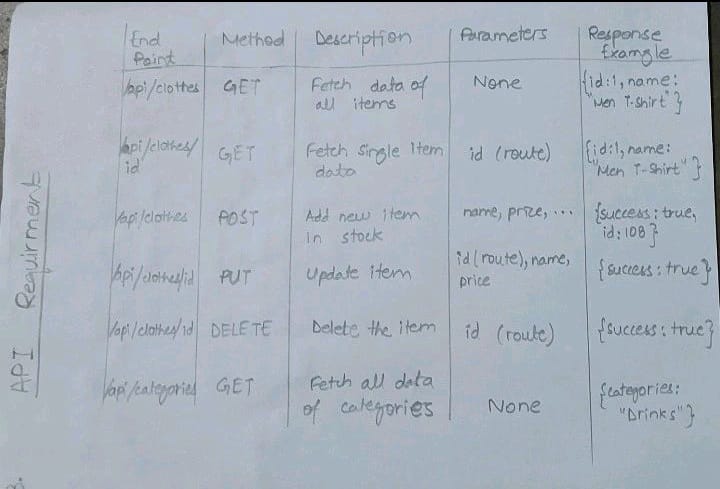 API Requirment
End Point | Method | Description | Parameters | Response Example
/api/clothes | GET | Fetch data of all items | None | {id:1, name: "Men T-Shirt"}
/api/clothes/id | GET | Fetch single item data | id (route) | {id:1, name: "Men T-Shirt"}
/api/clothes | POST | Add new item in stock | name, price, ... | {success: true, id: 108}
/api/clothes/id | PUT | Update item | id (route), name, price | {success: true}
/api/clothes/id | DELETE | Delete the item | id (route) | {success: true}
/api/categories | GET | Fetch all data of categories | None | {categories: "Drinks"}